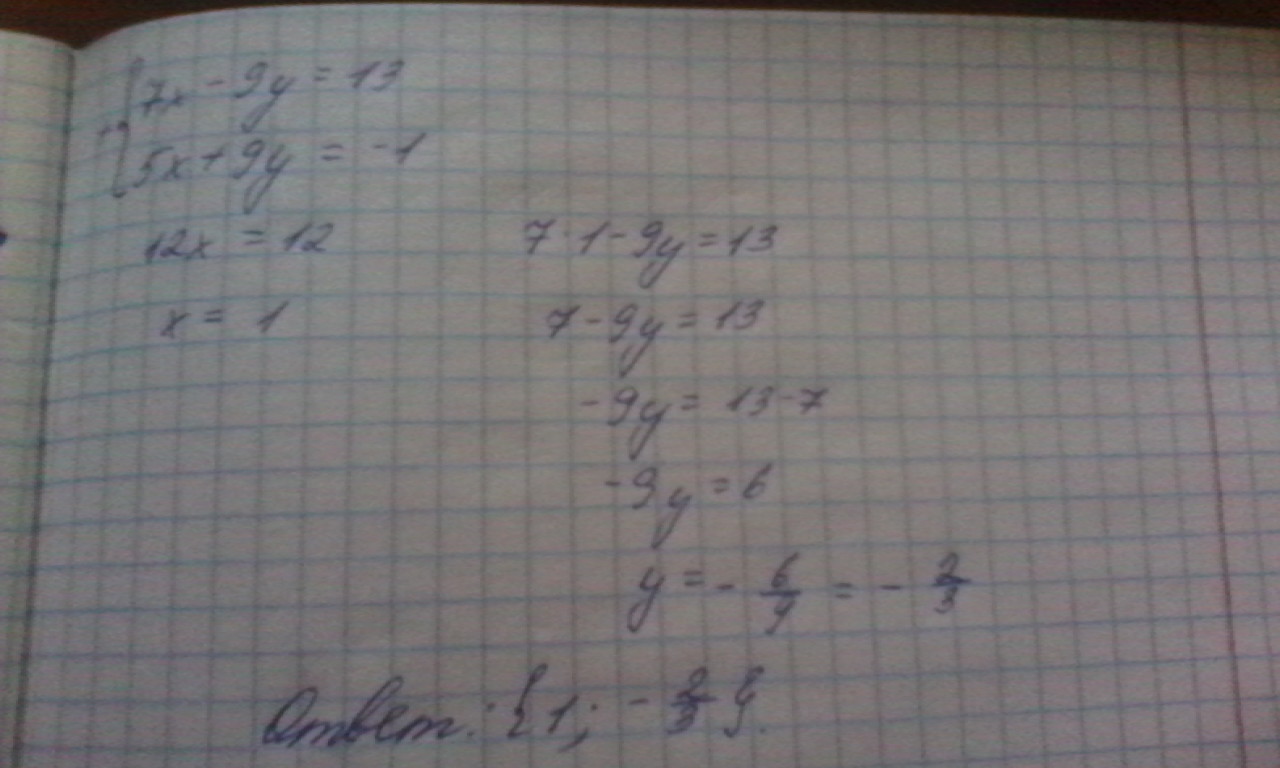 7x - 9y = 13
+
5x + 9y = -1
12x = 12
x = 1
7·1 - 9y = 13
7 - 9y = 13
-9y = 13 - 7
-9y = 6
y = - 6/9 = - 2/3
Ответ: {1; - 2/3}.